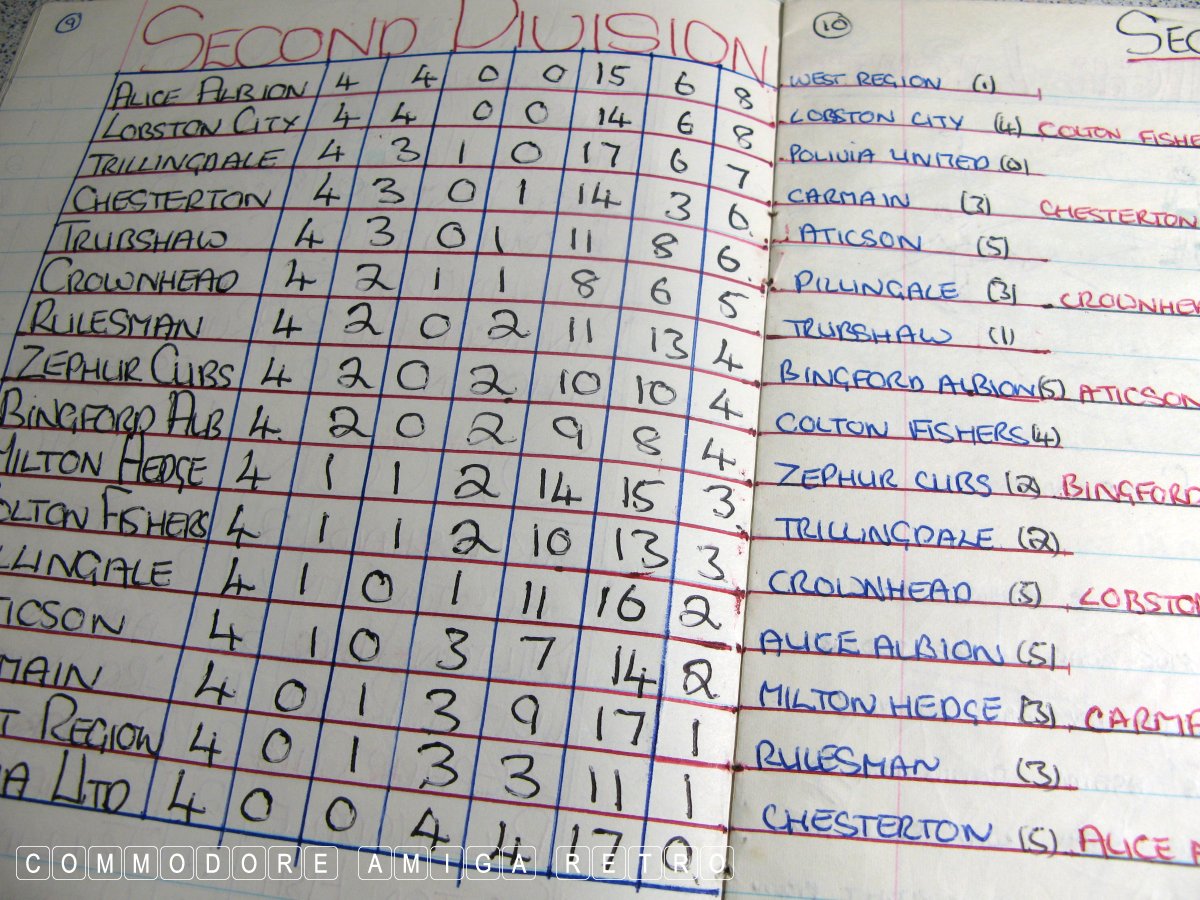 9
SECOND DIVISION
ALICE ALBION 4 4 0 0 15 6 8
LOBSTON CITY 4 4 0 0 14 6 8
TRILLINGDALE 4 3 1 0 17 6 7
CHESTERTON 4 3 0 1 14 3 6
TRUBSHAW 4 3 0 1 11 8 6
CROWNHEAD 4 2 1 1 8 6 5
RULESMAN 4 2 0 2 11 13 4
ZEPHUR CUBS 4 2 0 2 10 10 4
BINGFORD ALB 4 2 0 2 9 8 4
MILTON HEDGE 4 1 1 2 14 15 3
OLTON FISHERS 4 1 1 2 10 13 3
LLINGALE 4 1 0 1 11 16 2
TICSON 4 1 0 3 7 14 2
MAIN 4 0 1 3 9 17 1
T REGION 4 0 1 3 3 11 1
IA UTD 4 0 0 4 4 17 0
10
SEC
WEST REGION (1)
LOBSTON CITY (4) COLTON FISHE
POLIVIA UNITED (0)
CARMAIN (3) CHESTERTON
ATICSON (5)
PILLINGALE (3) CROWNHE
TRUBSHAW (1)
BINGFORD ALBION (5) ATICSON
COLTON FISHERS (4)
ZEPHUR CUBS (2) BINGFORD
TRILLINGDALE (2)
CROWNHEAD (5) LOBSTO
ALICE ALBION (5)
MILTON HEDGE (3) CARMA
RULESMAN (3)
CHESTERTON (5) ALICE A
COMMODORE AMIGA RETRO